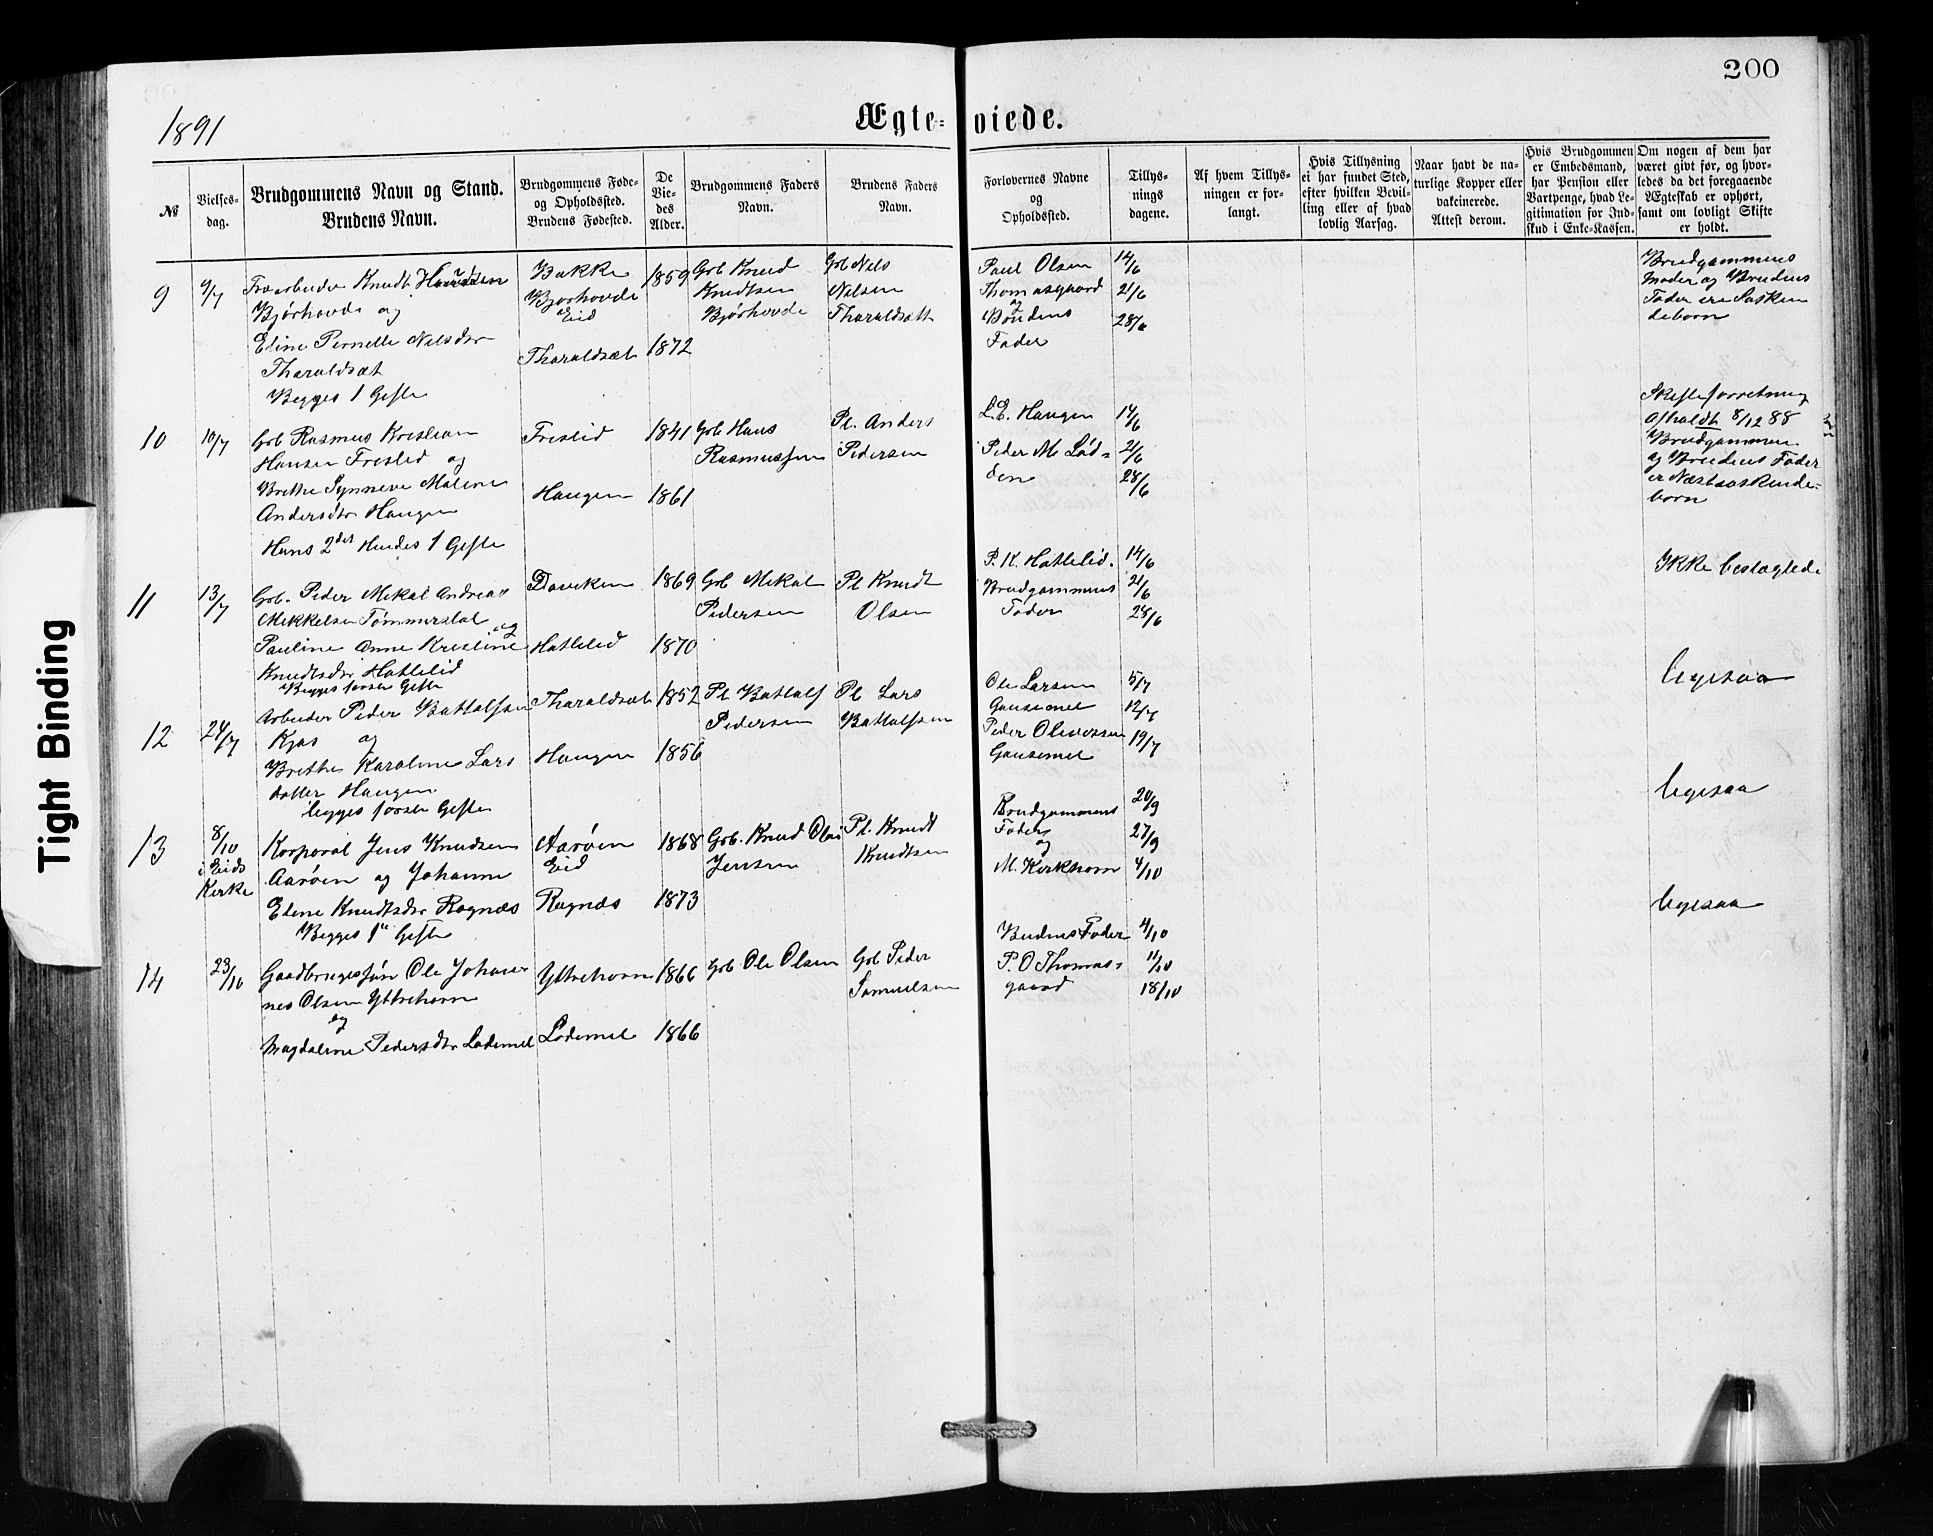 200
1891
Ægte-viede.
№
Vielses-
dag.
Brudgommens Navn og Stand.
Brudens Navn.
Brudgommens Føde-
og Opholdsted.
Brudens Fødested.
De
Vie-
des
Alder.
Brudgommens Faders
Navn.
Brudens Faders
Navn.
Forlovernes Navne
og
Opholdsted.
Tillys-
nings
dagene.
Af hvem Tillys-
ningen er for-
langt.
Hvis Tillysning
ei har fundet Sted,
efter hvilken Bevil-
ling eller af hvad
lovlig Aarsag.
Naar havt de na-
turlige Kopper eller
vakcinerede.
Attest derom.
Hvis Brudgommen
er Embedsmand,
har Pension eller
Vartpenge, hvad Le-
gitimation for Ind-
skud i Enke-Kassen.
Om nogen af dem har
været givt før, og hvor-
ledes da det foregaaende
Ægteskab er ophørt,
samt om lovligt Skifte
er holdt.
9
9/7
Knudt
Bjørhovde og
Eline Pernelle Nilsdtr
Tharaldsæt
Begges 1 Gifte
Bakke
Bjørhovde
Eid
Tharaldsæt
1859
1872
Grb Knud
Knudtsen
Bjørhovde
Grb Nils
Nilsen
Tharaldsætt
Paul Olsen
Thomasgaard
og
Brudens
Fader
14/6
21/6
28/6
Brudgommens
Moder og Brudens
Fader ere Søsken
deborn
10
10/7
Grb Rasmus Kristian
Hansen Frislid og
Brithe Synneve Maline
Andersdtr Haugen
Hans 2der Hendes 1 Gifte
Frislid
Haugen
1841
1861
Grb Hans
Rasmussen
Pl. Anders
Pedersen
L.E. Haugen
Peder M. Lød-
een
14/6
21/6
28/6
Skifteforretning
Afholdt 8/12 88
Brudgommen
og Brudens Fader
er Næstsøskende-
born
11
13/7
Grb. Peder Mikal Andreas
Mikkelsen Tømmerstøl
og
Pauline Anne Kristine
Knudtsdtr Hatlelid
Begges første Gifte
Daviken
Hatlelid
1869
1870
Grb Mikal
Pedersen
Pl Knudt
Olsen
P. K. Hatlelid.
Brudgommens
Fader
14/6
21/6
28/6
Ikke beslægtede
12
24/7
Arbeider Peder Battalfsen
Kjøs og
Brithe Karoline Lars
datter Haugen.
begges første Gifte
Tharaldsæt
Haugen
1852
1856
Pl Battalf
Pedersen
Pl Lars
Battalfsen
Ole Larsen
Gausemel
Peder Oliversen
Gausemel
5/7
12/7
19/7
ligesaa
13
8/10
i Eids
Kirke
Korporal Jens Knudsen
Aarøen og Johanne
Eline Knudtsdtr Rognæs
Begges 1ste Gifte
Aarøen
Eid
Rognæs
1868
1873
Grb. Knud Olai
Jensen
Pl. Knudt
Knudtsen
Brudgommens
Fader
og
M. Kirkhorn
20/9
27/9
4/10
ligesaa
14
23/10
Gaardbrugersøn Ole Johan-
nes Olsen Yttrehorn
og
Magdaline Pedersdtr Lødemel
Yttrehorn
Lødemel
1866
1866
Grb Ole Olsen
Grb Peder
Samuelsen
Brudens Fader
P. O Thomas-
gaard
4/10
11/10
18/10
ligesaa
Tight Binding